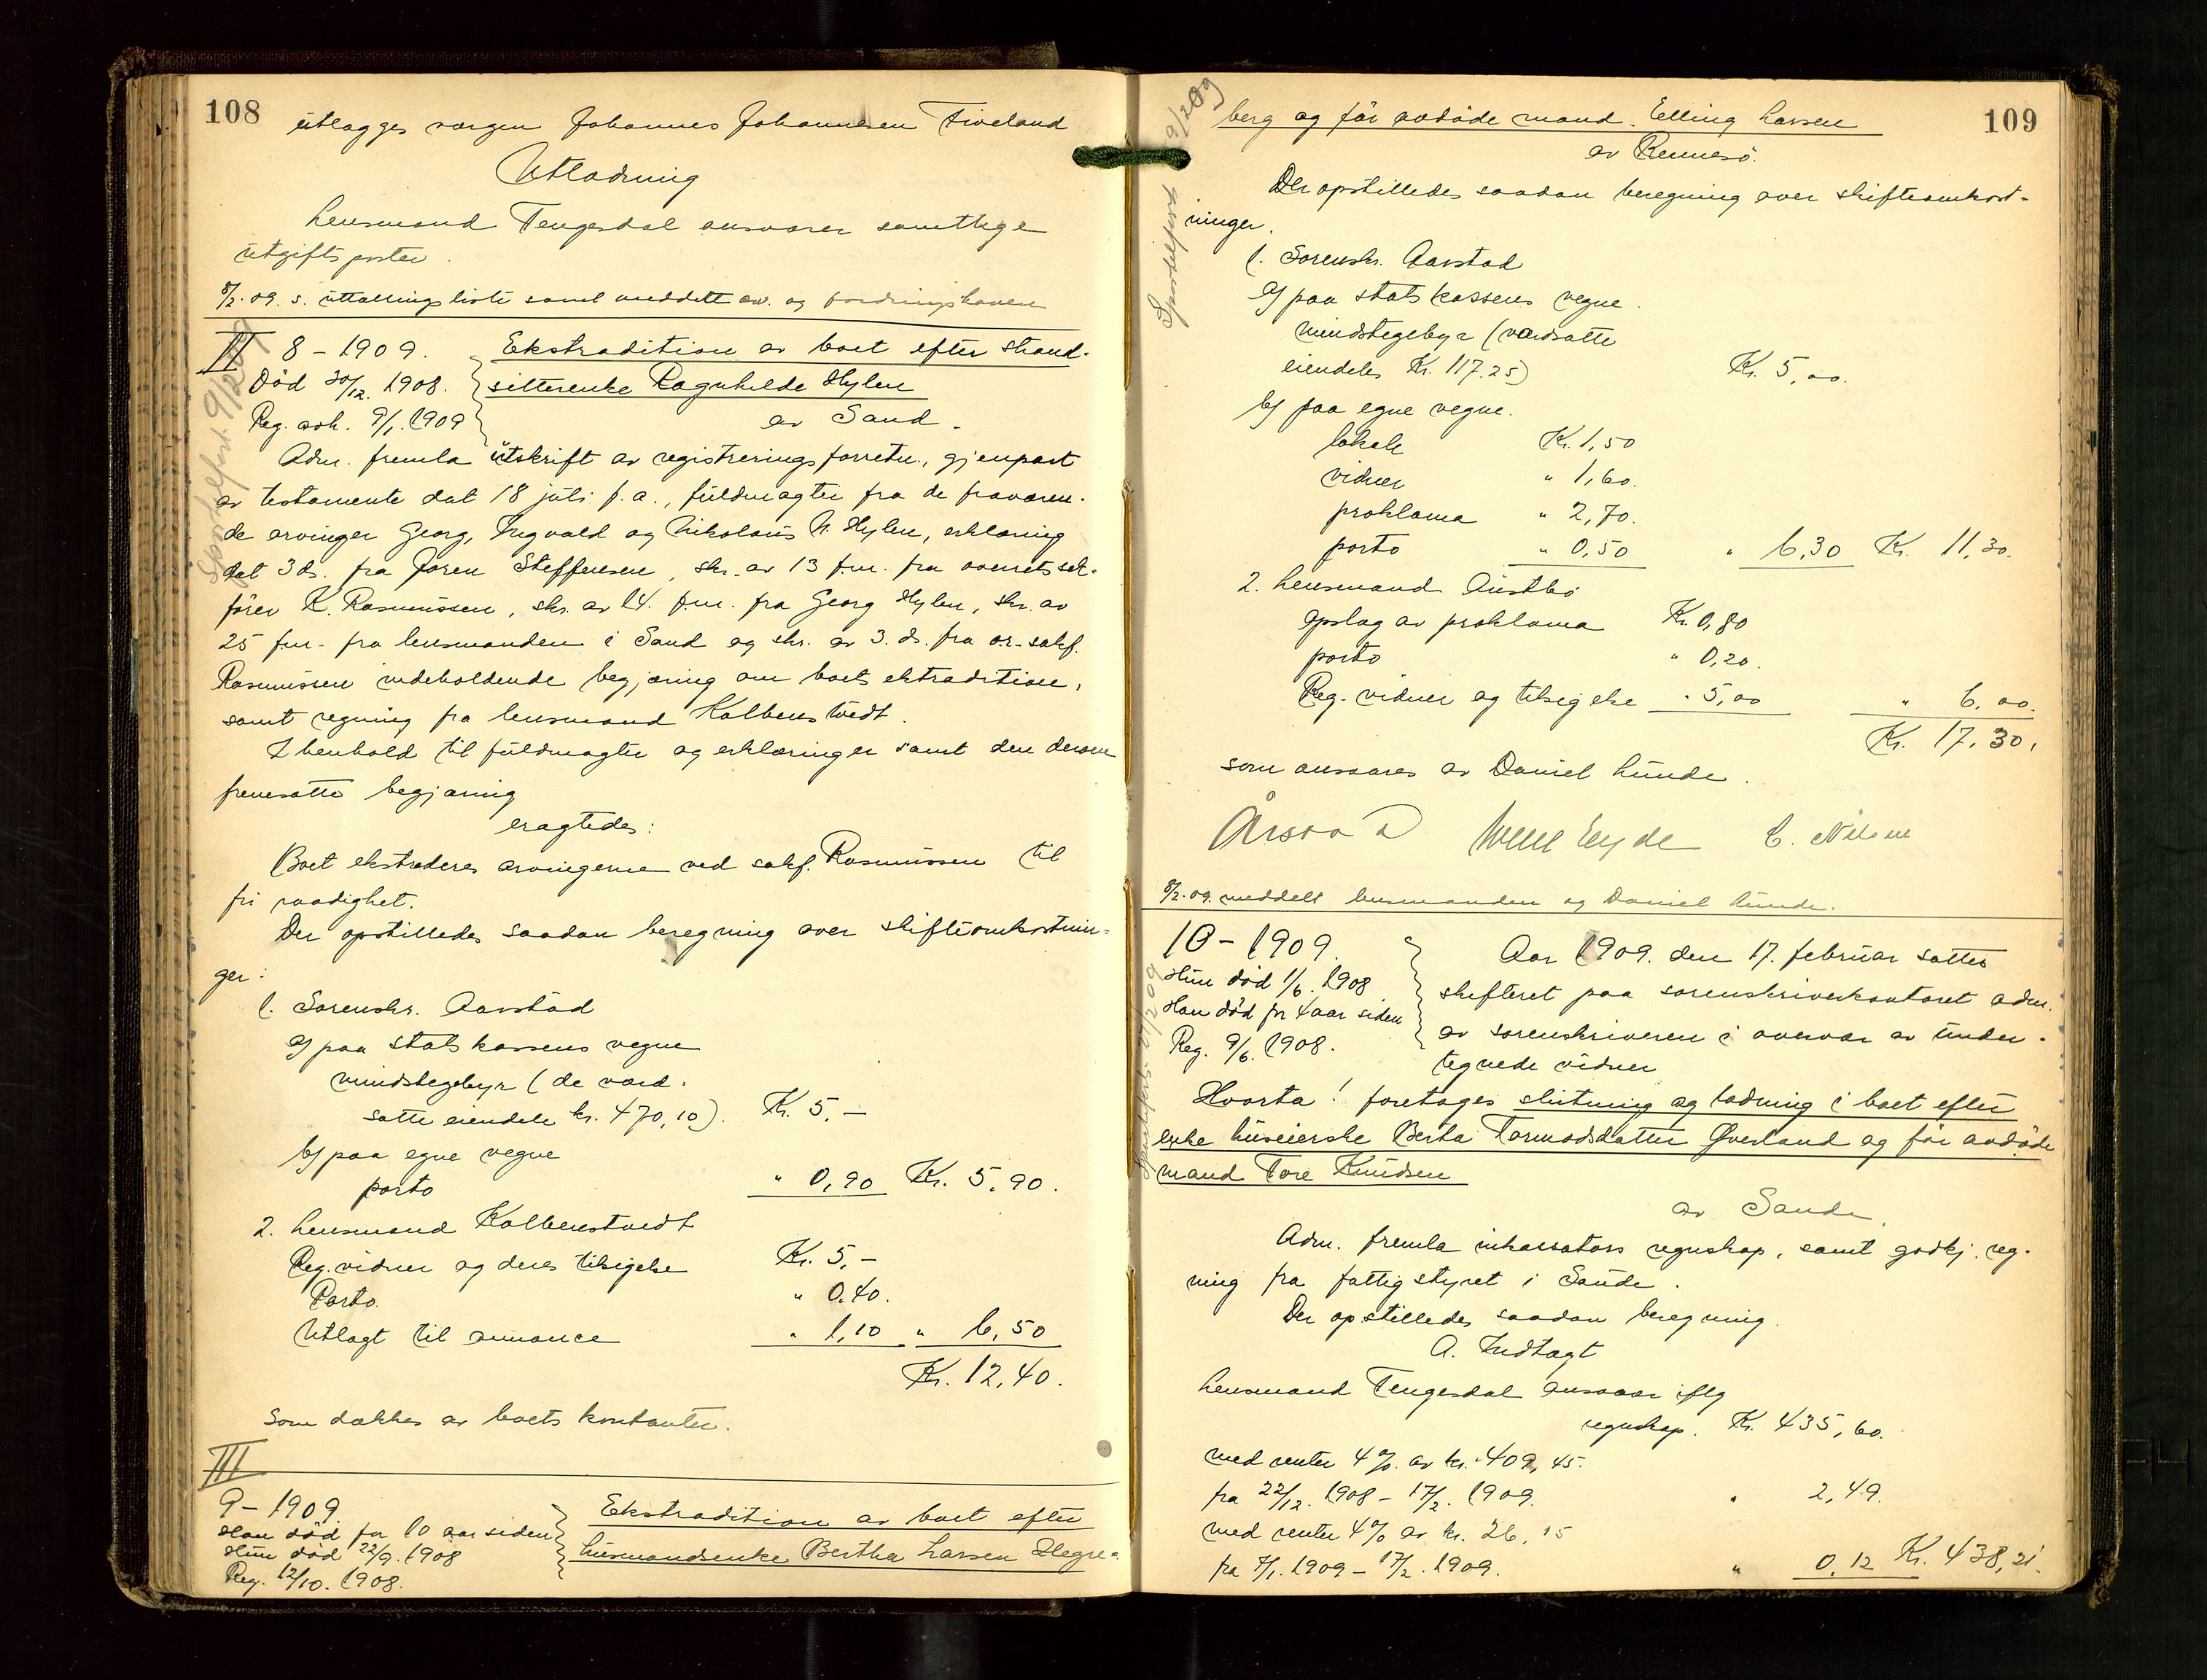 108
utlægges værgen Johannes Johannesen Fiveland
Utlodning
Lensmand Tengesdal ansvarer samtlige
utgiftsposter.
8/2.09. s. uttællingsliste samt meddelt arv. og fordringshavere
II 8 - 1909. Ekstradition av boet efter strand-
Død 30/12. 1908. sitterenke Ragnhilde Hylen
Reg. avh. 9/1. 1909 av Sand.
Sportelført 9/2 09
Adm. fremla utskrift av registreringsforretn., gjenpart
av testamente dat 18 juli f.a., fuldmagter fra de fraværen-
de arvinger Georg, Ingvald og Nikolaus N. Hylen, erklæring
dat 3 ds. fra Joren Steffensen, skr. av 13 f.m. fra overretssak-
fører K. Rasmussen, skr. av 14. f.m. fra Georg Hylen, skr. av
25 f.m. fra lensmanden i Sand og skr. av 3. ds. fra o.r.sakf.
Rasmussen indeholdende begjæring om boets ekstradition,
samt regning fra lensmand Kolbenstvedt.
I henhold til fuldmagter og erklæringer samt den derom
fremsatte begjæring
eragtedes:
Boet ekstraderes arvingerne ved sakf. Rasmussen til
fri raadighet.
Der opstilledes saadan beregning over skifteomkostnin-
ger:
1. Sorenskr. Aarstad
a) paa statskassens vegne
mindstegebyr (de værd-
satte eiendele kr. 470,10). Kr. 5,-
b) paa egne vegne
porto " 0,90 Kr. 5,90.
2. Lensmand Kolbenstvedt
Reg.vidner og deres tilsigelse Kr. 5,-
Porto. " 0,40.
Utlagt til annonce " 1,10 " 6,50
Kr. 12,40.
som dækkes av boets kontanter.
III
9 - 1909. Ekstradition av boet efter
Han død for 10 aar siden husmandsenke Bertha Larsen Hegre-
Hun død 22/9. 1908
Reg. 12/10. 1908.
109
berg og før avdøde mand Elling Larsen
av Rennesø.
Sportelført 9/2 09
Der opstilledes saadan beregning over skifteomkost-
ninger.
1. Sorenskr. Aarstad
a) paa statskassens vegne
mindstegebyr (værdsatte
eiendeler Kr. 117.25) Kr. 5,00.
b) paa egne vegne.
lokale Kr. 1,50
vidner " 1,60.
proklama " 2,70.
porto " 0,50 " 6,30 Kr. 11,30.
2. Lensmand Austbø
opslag av proklama Kr. 0,80
porto " 0,20.
Reg. vidner og tilsigelse " 5,00 " 6,00.
Kr. 17,30.
som ansvares av Daniel Lunde.
Årsvo C. Nilsen
8/2.09. meddelt lensmanden og Daniel Lunde.
10 - 1909. Aar 1909. den 17. februar sattes
Hun død 1/6. 1908 skifteret paa sorenskriverkontoret adm.
Han død for 4 aar siden av sorenskriveren i overvær av under-
Reg. 9/6. 1908. tegnede vidner
Hvorda! foretoges slutning og lodning i boet efter
enke huseierske Berta Tormodsdatter Øverland og før avdøde
mand Tore Knudsen
av Saude.
Adm. fremla inkassators regnskap, samt godkj. reg-
ning fra fattigstyret i Saude.
Der opstilledes saadan beregning.
A. Indtægt
Lensmand Tengesdal ansvar iflg
regnskap. Kr. 435,60.
med renter 4 % av kr. 409,45.
fra 22/12. 1908 - 17/2. 1909. " 2,49.
med renter 4% av kr. 26,15
fra 7/1. 1909 - 17/2. 1909. " 0,12 Kr. 438,21.